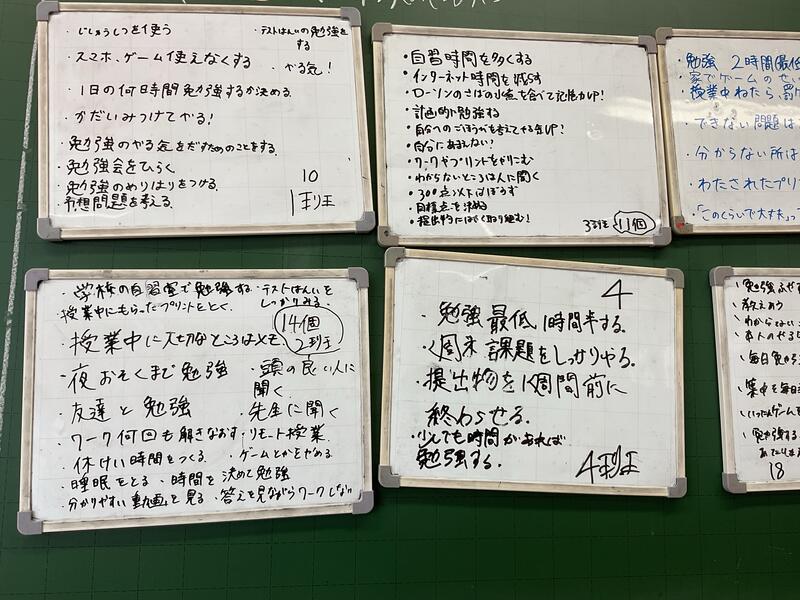 ・じしゅうしつを使う
・テストはんいの勉強をする
・スマホ、ゲーム使えなくする
・やる気!
・1日の何時間勉強するか決める
・かだいみつけてやる!
・勉強のやる気をだすためのことをする。
・勉強会をひらく
・勉強のめりはりをつける。
・予想問題を考える。
10
1班
・自習時間を多くする
・インターネット時間を減らす
・ローソンのさばの水煮を食べて記憶力UP!
・計画的に勉強する
・自分へのごほうびを考えてやる気UP!
・自分にあまえない!
・ワークやプリントをやりこむ
・わからないところは人に聞く
・300点以下はぼうず
・目標点を決める
・提出物にはやく取り組む!
3班 11個
・勉強 2時間(最低
・家でゲームの
・授業中ねたら、罰
・できない問題は
・分からない所は
・わたされたプリ
・「このくらいで大丈夫」っ
・学校の自習室で勉強する
・テストはんいをしっかりみる。
授業中にもらったプリントをとく。
・授業中に大切なところはメモ
14個
2班
・夜おそくまで勉強
・頭の良い人に聞く
・友達と勉強
・先生に聞く
・ワーク何回も解きなおす
・リモート授業
・休けい時間をつくる
・ゲームとかをやめる
・睡眠をとる
・時間を決めて勉強
・分かりやすい動画を見る
・答えを見ながらワークしない
4
・勉強最低1時間半する。
・週末課題をしっかりやる。
・提出物を1週間前に
終わらせる。
・少しでも時間があれば
勉強する。
4班
・教えあう
・わからない
・毎日
・集中
18